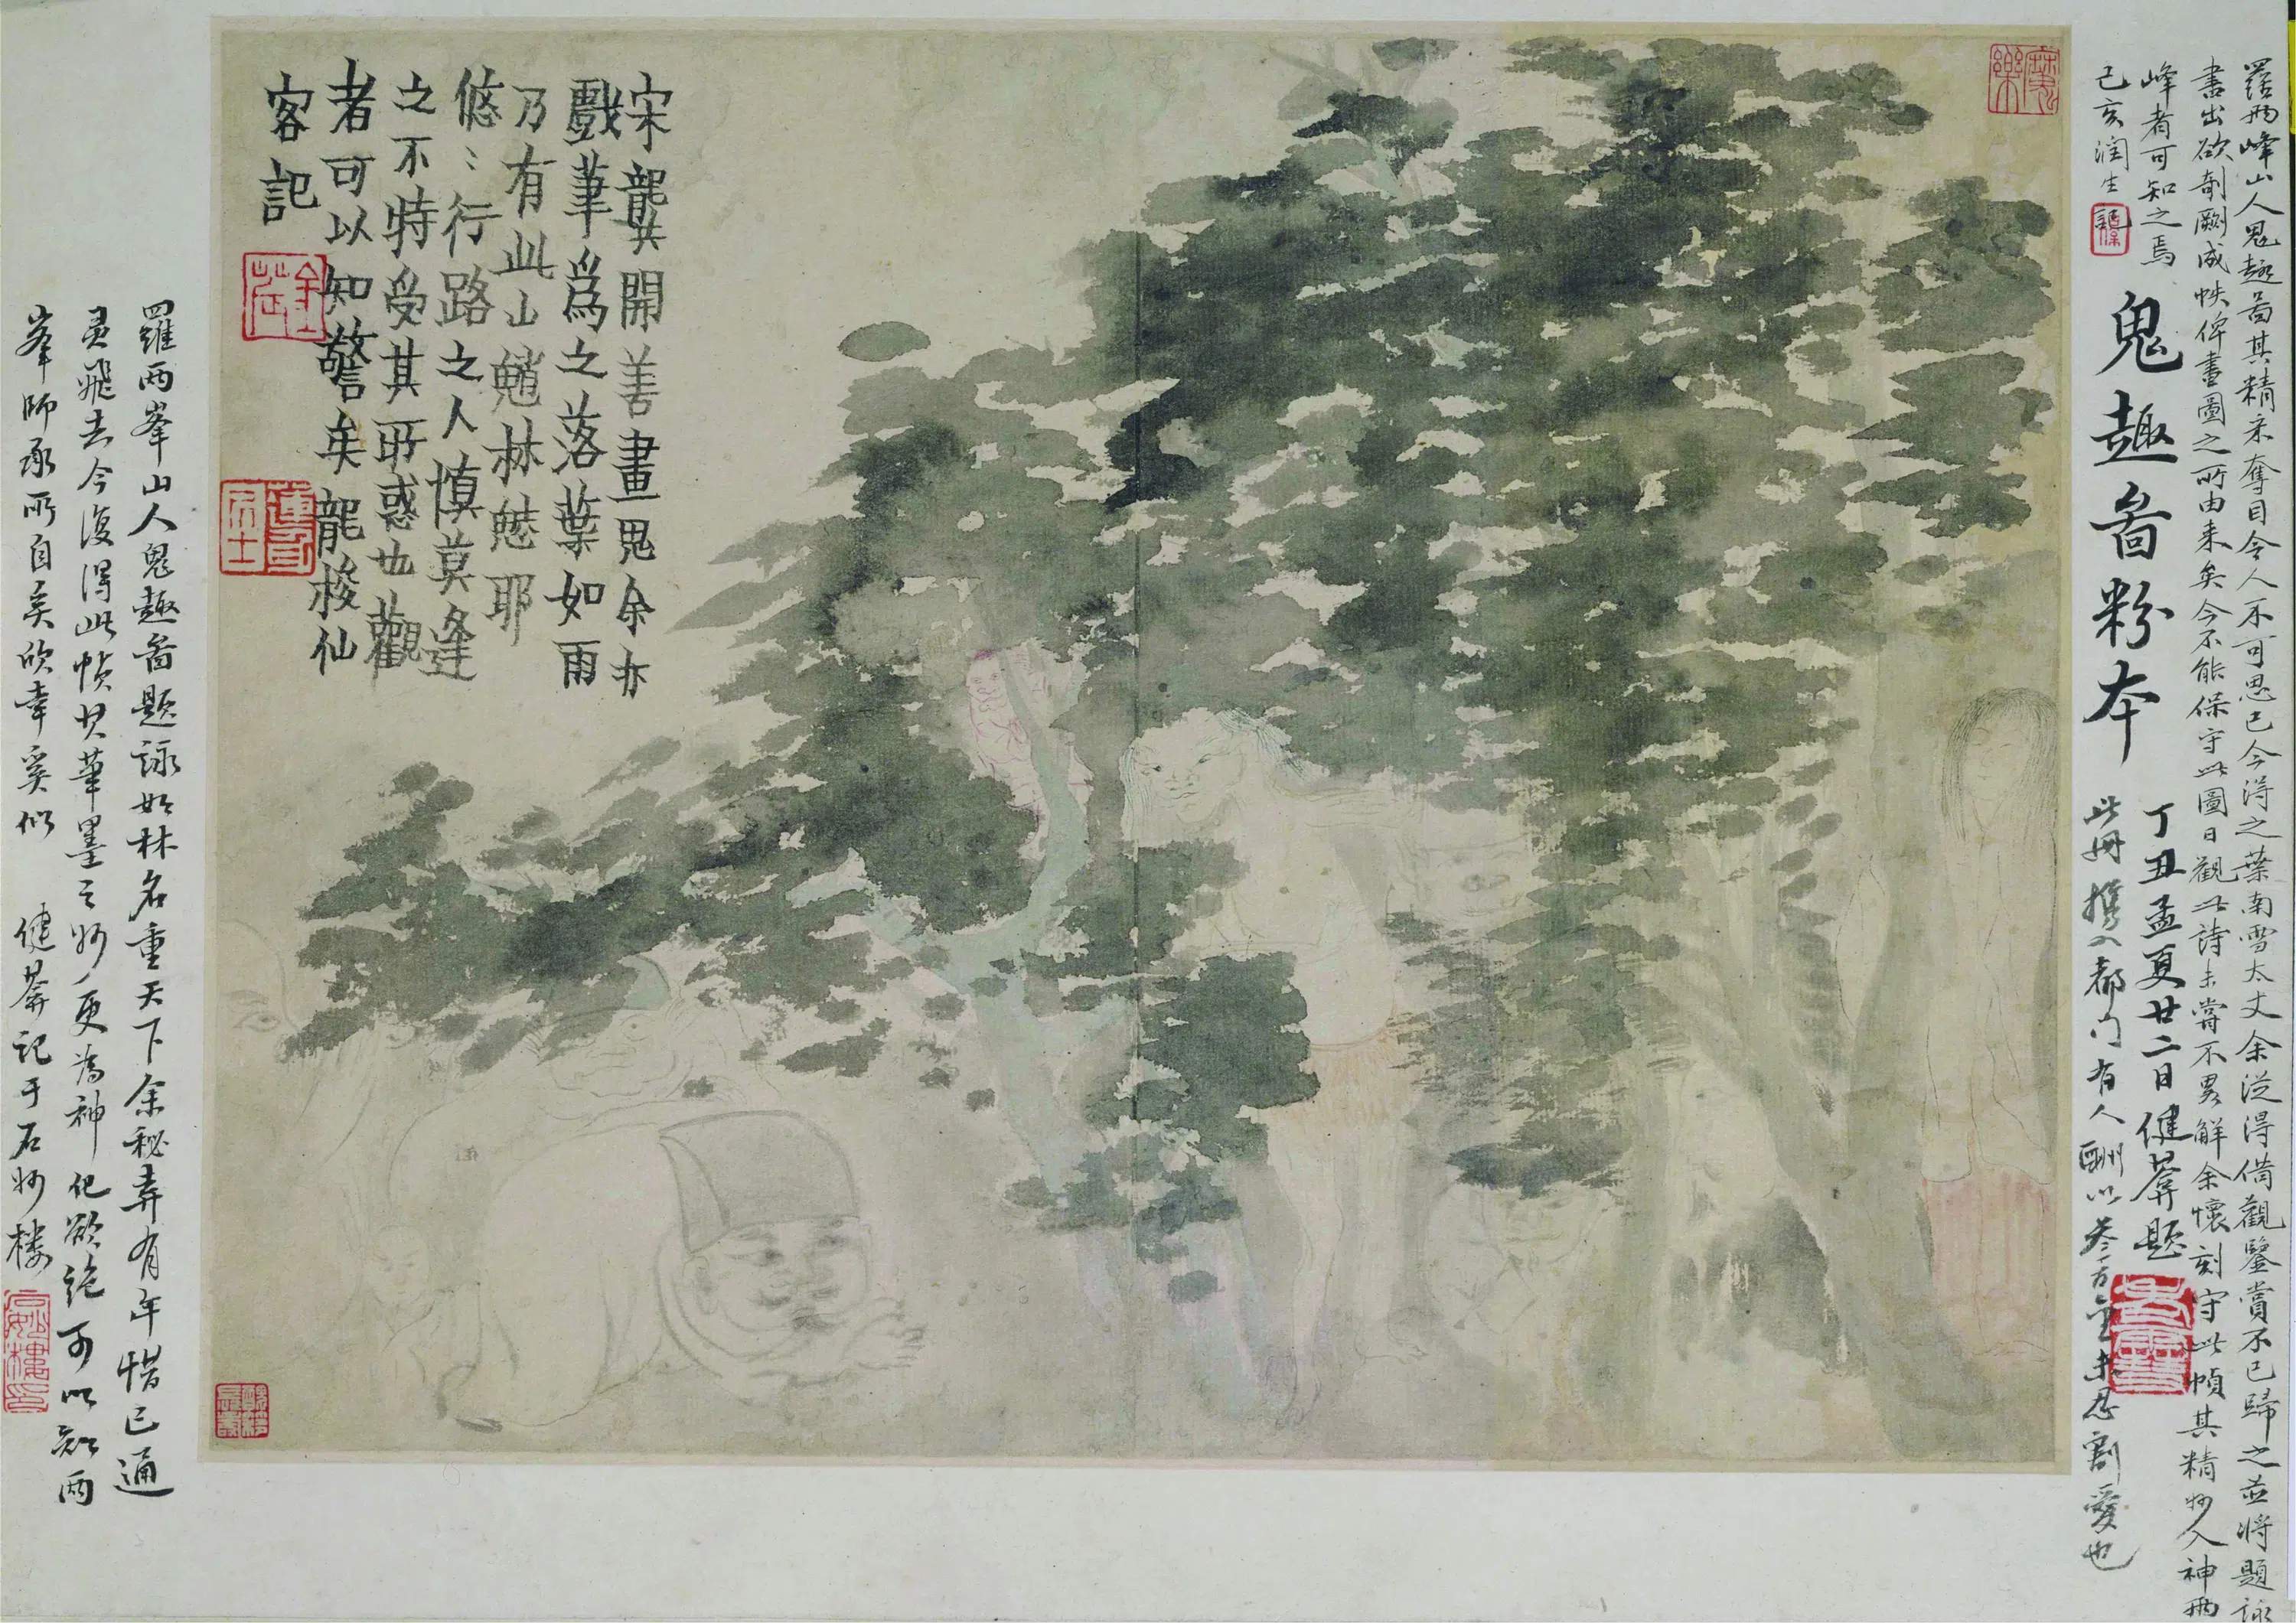 羅兩峰山人鬼趣啚其精采奪目令人不可思已今得之葉南雪太丈余從得借觀鑒賞不已歸之並將題詠
書出欲剞劂成帙俾畫圖之所由来矣今不能保守此圖日觀此詩未嘗不畧解余懷刻守此幀其精妙入神兩
峰者可知之焉
己亥潤生
鬼趣啚粉本
丁丑孟夏廿二日健葊題
此冊攜入都门有人酬以叁百金未忍割愛也
宋龔開善畫鬼余亦
戲筆爲之落葉如雨
乃有此山魈林魋耶
悠〻行路之人慎莫逢
之不特受其所惑也觀
者可以知警矣龍梭仙
客記
羅兩峯山人鬼趣啚題詠如林名重天下余秘弆有年惜已通
靈飛去今復得此幀其筆墨之妙更為神化欲絶可以知兩
峯師承所自矣欣幸奚似
健葊記于石妙樓